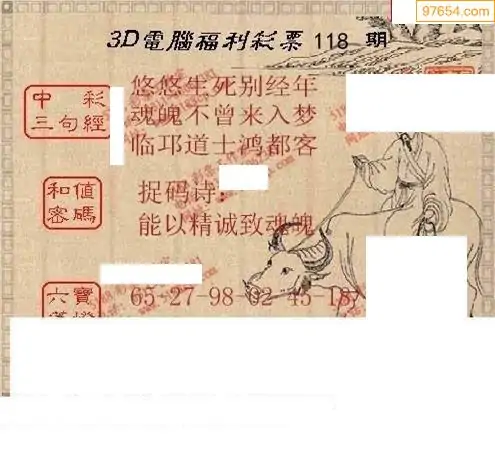 97654.com
3D電腦福利彩票 118 期
中彩
三句經
悠悠生死别经年
魂魄不曾来入梦
临邛道士鸿都客
和值
密碼
捉码诗:
能以精诚致魂魄
六寶
65-27-98-02-45-187